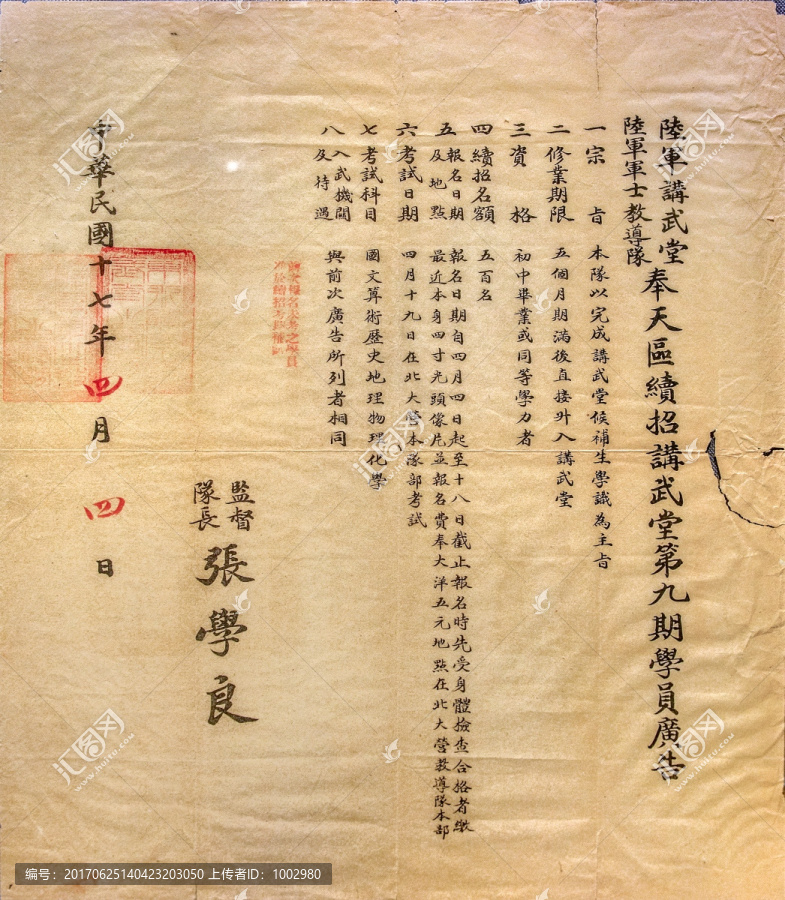 陸軍講武堂
陸軍軍士教導隊
奉天區續招講武堂第九期學員廣告
一宗旨 本隊以完成講武堂候補生學識為主旨
二修業期限 五個月期滿後直接升入講武堂
三資格 初中畢業或同等學力者
四續招名額 五百名
五報名日期及地點 報名日期自四月四日起至十八日截止報名時先受身體檢查合格者繳
最近本身四寸光頭像片並報名費奉大洋五元地點在北大營教導隊本部
六考試日期 四月十九日在北大營本隊部考試
七考試科目 國文算術歷史地理物理化學
八入武機關及待遇 與前次廣告所列者相同
監督
隊長
張學良
中華民國十七年四月四日
汇图网
www.huitu.com
编号：20170625140423203050 上传者ID：1002980